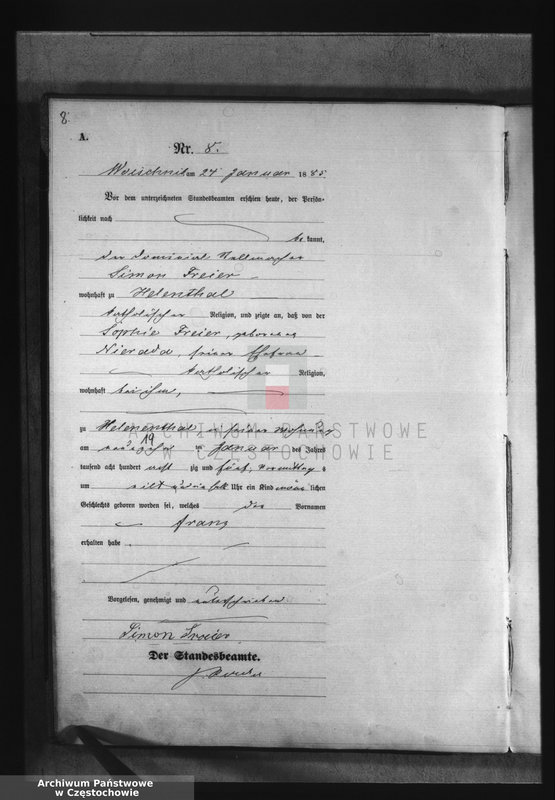 8.
A.
Nr. 8.
Woischnik am 24 Januar 1885
Vor dem unterzeichneten Standesbeamten erschien heute, der Persön-
lichkeit nach
be kannt,
der Dominial
Simon Freier
wohnhaft zu Helenthal
katholischer Religion, und zeigte an, daß von der
Sophie Freier, geborenen
Nierada, seiner Ehefrau
katholischer Religion,
wohnhaft bei ihm,
zu Helenenthal, in seiner Wohnung
am 19 Januar des Jahres
tausend acht hundert acht zig und fünf, Vormittag s
um elf Uhr ein Kind männ lichen
Geschlechts geboren worden sei, welches den Vornamen
Franz
erhalten habe
Vorgelesen, genehmigt und unterschrieben
Simon Fraier
Der Standesbeamte.
ARCHIWUM PAŃSTWOWE
W CZĘSTOCHOWIE
Archiwum Państwowe
w Częstochowie